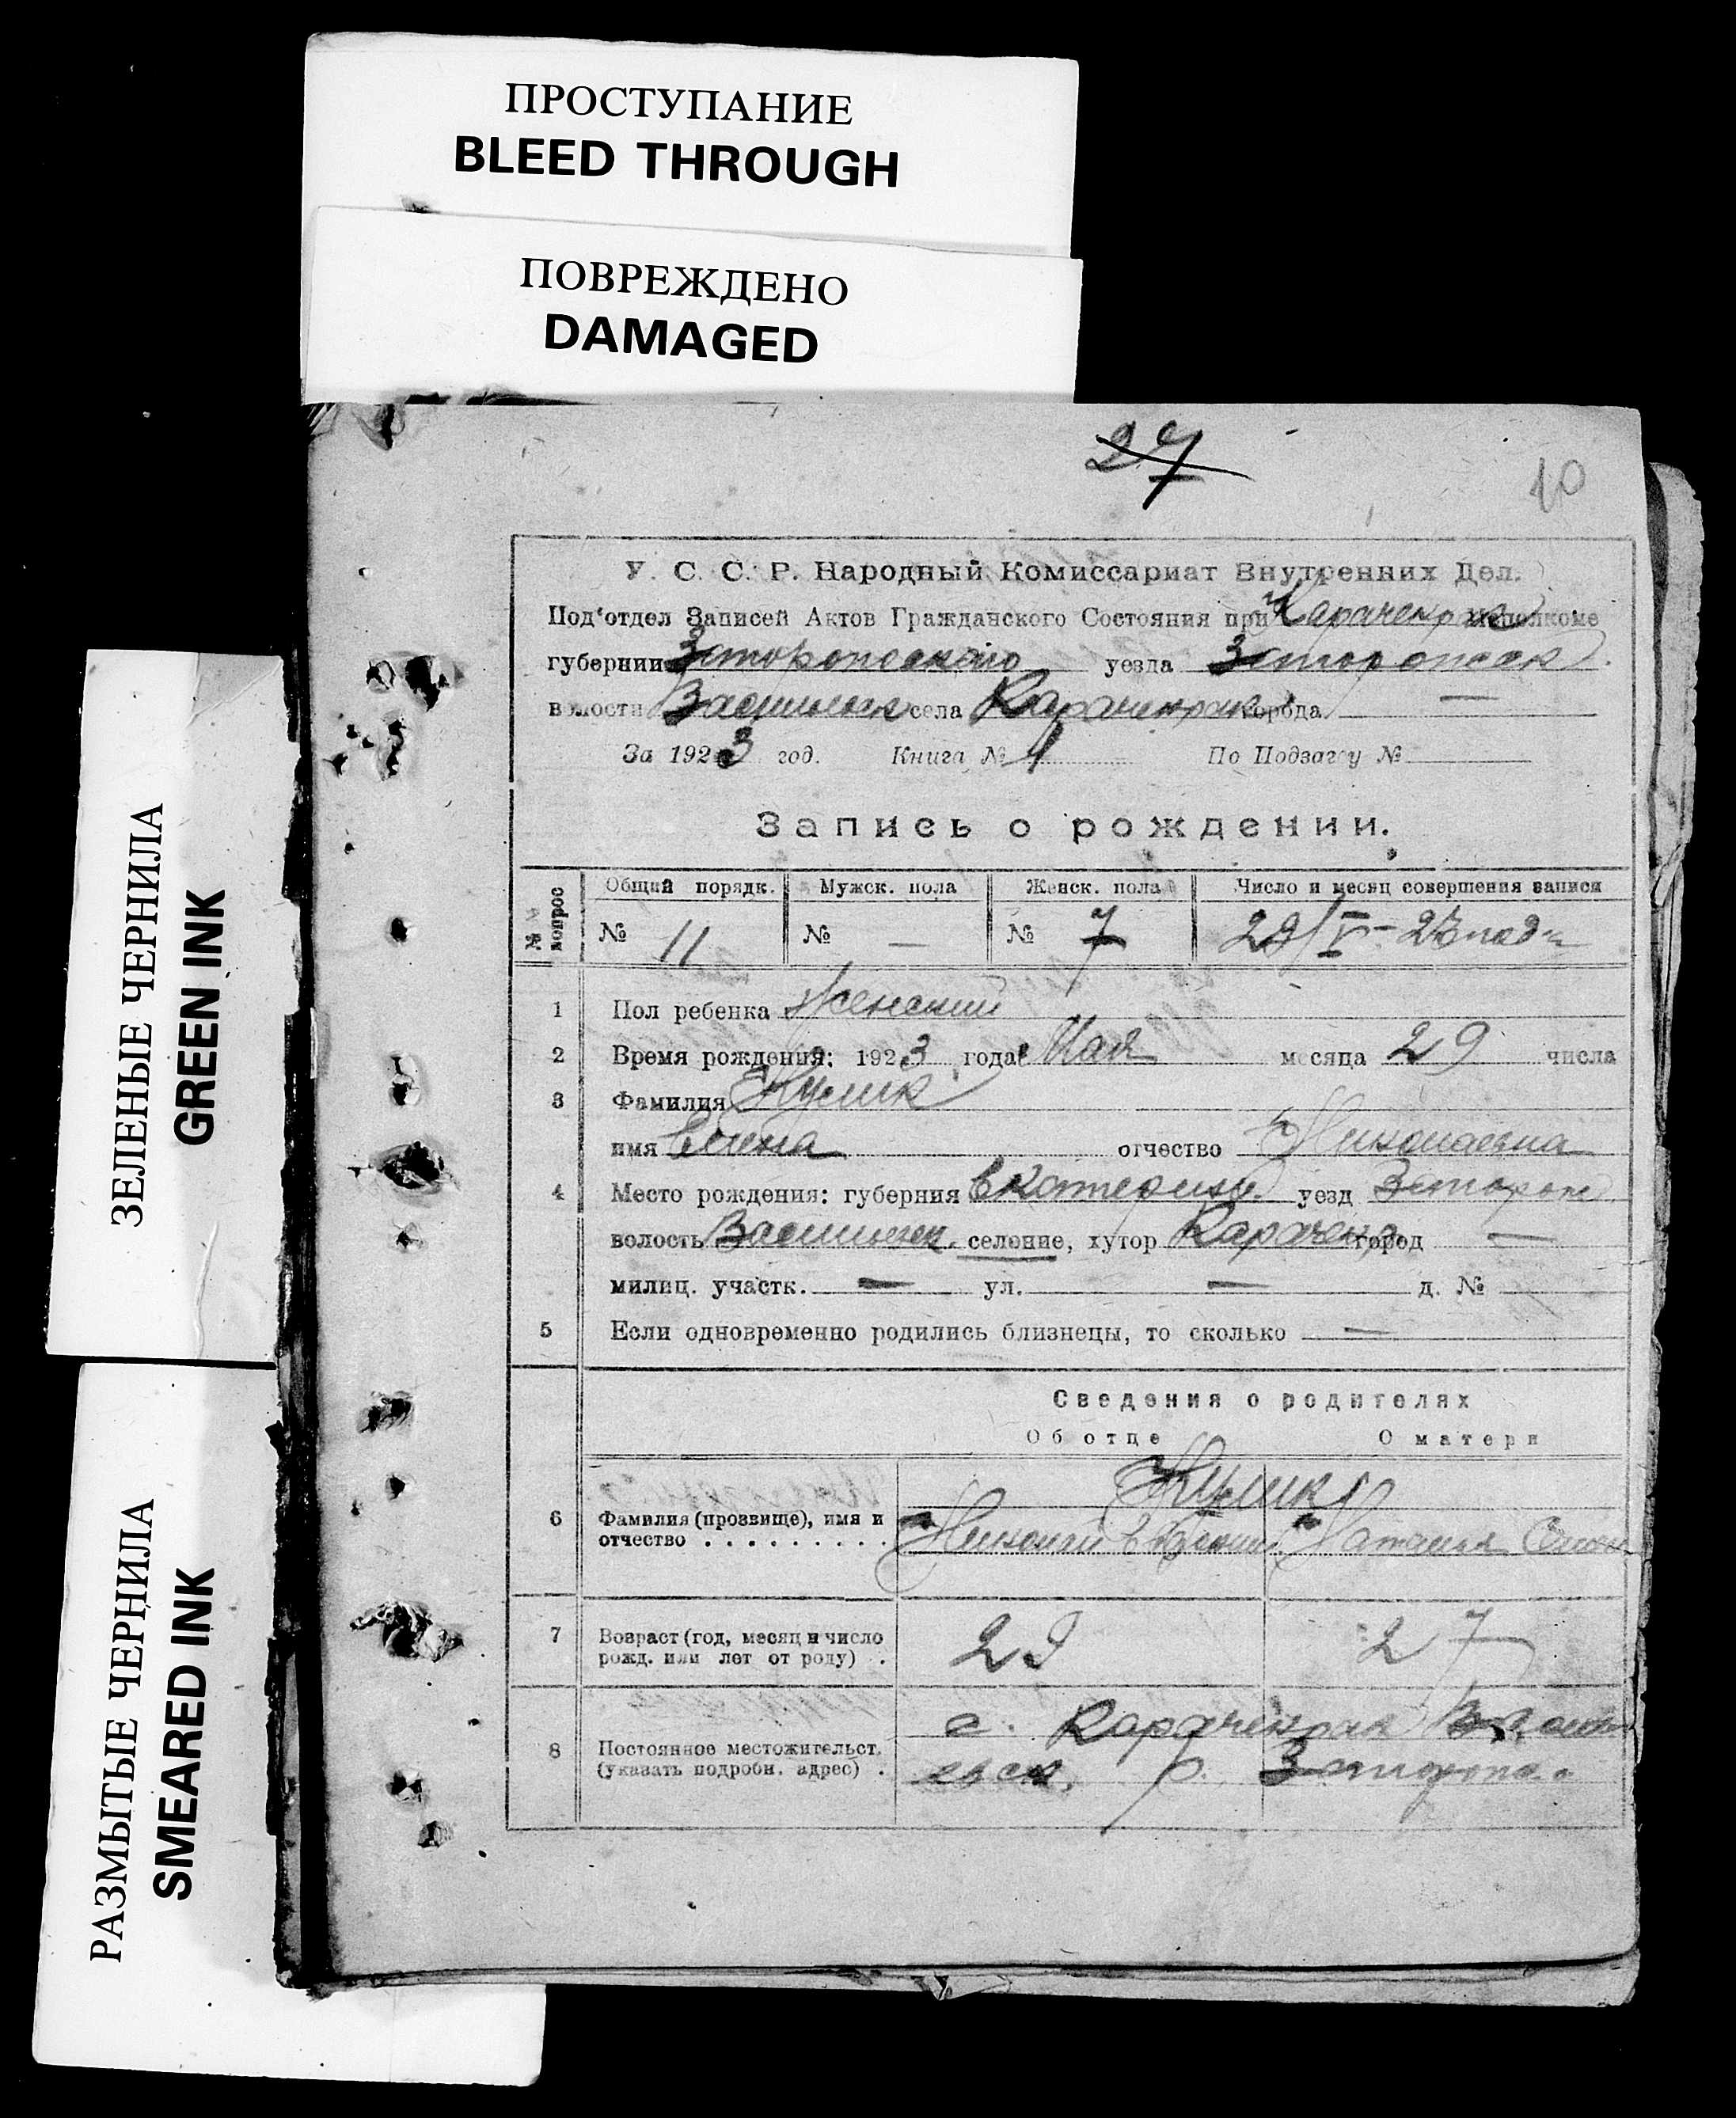 ПРОСТУПАНИЕ
BLEED THROUGH
ПОВРЕЖДЕНО
DAMAGED
ЗЕЛЕНЫЕ ЧЕРНИЛА
GREEN INK
РАЗМЫТЫЕ ЧЕРНИЛА
SMEARED INK
27
10
У. С. С. Р. Народный Комиссариат Внутренних Дел.
Под'отдел Записей Актов Гражданского Состояния при Карачекрак исполкоме
губернии уезда
волости села Карачекрак города —
За 1923 год. Книга № 1 По Подзагсу №
Запись о рождении.
№№ вопрос Общий порядк. Мужск. пола Женск. пола Число и месяц совершения записи
№ 11 № — № 7 29/V- 23
1 Пол ребенка Женский
2 Время рождения: 1923 года Мая месяца 29 числа
3 Фамилия Кулик
имя Елена отчество Николаевна
4 Место рождения: губерния Екатерин. уезд
волость Васильев. селение, хутор Карачекр. город —
милиц. участк. — ул. — д. №
5 Если одновременно родились близнецы, то сколько —
Сведения о родителях
Об отце О матери
Кулик
6 Фамилия (прозвище), имя и
отчество Николай Наталья
7 Возраст (год, месяц и число
рожд. или лет от роду) . 29 27
с. Карачекрак
8 Постоянное местожительст.
(указать подробн. адрес) .